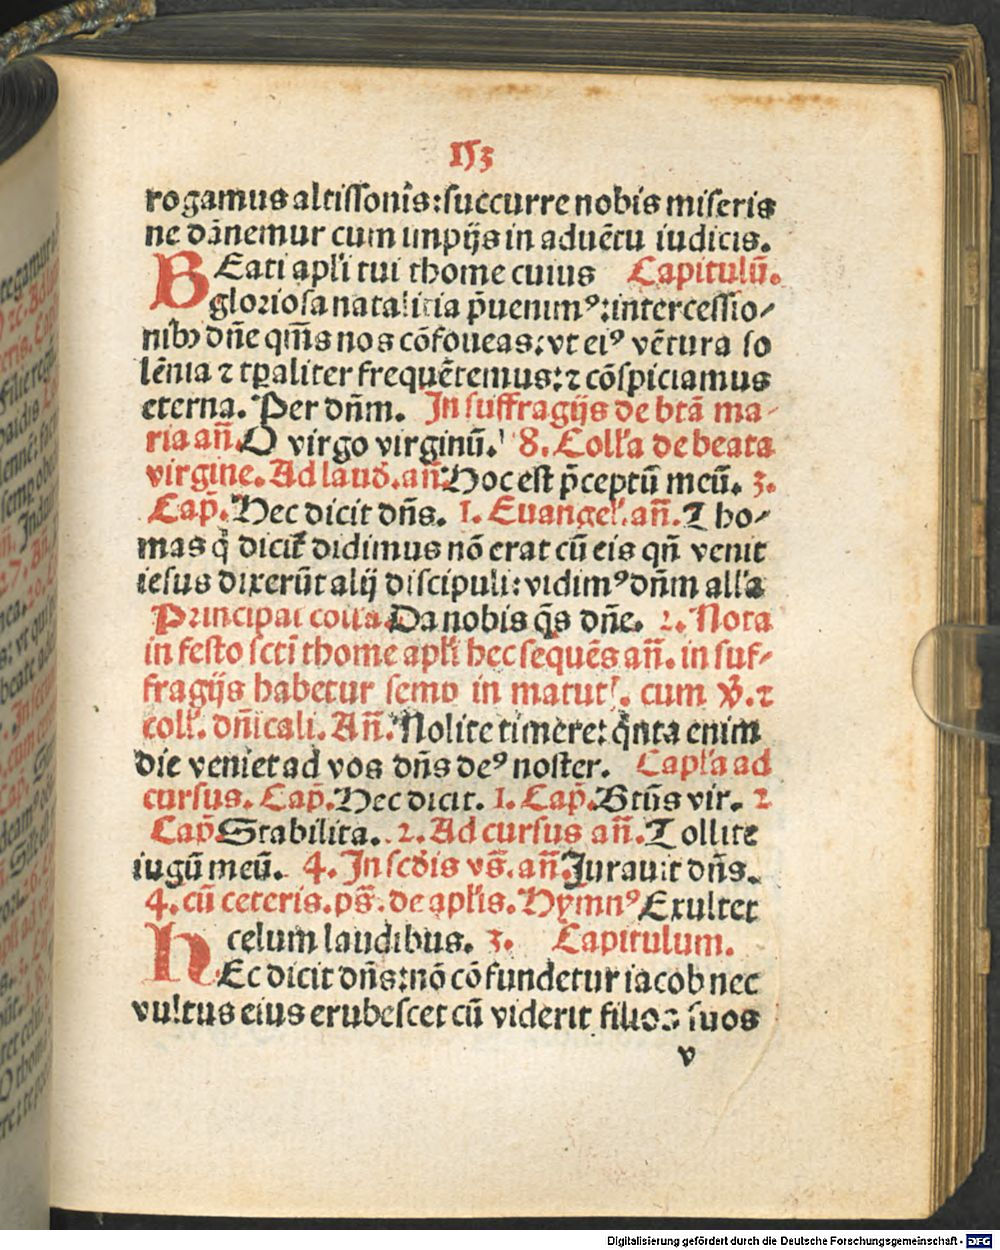 153
rogamus altissonis: succurre nobis miseris
ne dānemur cum impijs in aduētu iudicis.
BEati apl'i tui thome cuius Capitulū.
gloriosa natalicia p̄uenimꝰ: intercessio-
nibꝫ dn̄e qm̄s nos cōfoueas: vt eiꝰ vētura so
lēnia ⁊ tꝑaliter frequētemus: ⁊ cōspiciamus
eterna. Per dn̄m. In suffragijs de btā ma-
ria an̄. O virgo virginū. 8. Coll'a de beata
virgine. Ad laud. an̄. Hoc est p̄ceptū meū. 3.
Cap̄. Hec dicit dn̄s. 1. Euangel'. an̄. Tho-
mas q̇ dicit̄ didimus nō erat cū eis qn̄ venit
iesus dixerūt alij discipuli: vidimꝰ dn̄m all'a
Principal Da nobis q̄s dn̄e. 2. Nota
in festo scti thome apl'i hec sequēs an̄. in suf-
fragijs habetur semꝑ in matut'. cum v̄. ⁊
coll'. dn̄icali. An̄. Nolite timere: q̇nta enim
die veniet ad vos dn̄s deꝰ noster. Capl'a ad
cursus. Cap̄. Hec dicit. 1. Cap̄. Btūs vir. 2
Cap̄ Stabilita. 2. Ad cursus an̄. Tollite
iugū meū. 4. In scdis vs̄. an̄. Jurauit dn̄s.
4. cū ceteris. ps̄. de apl'is. Hymnꝰ Exultet
celum laudibus. 3. Capitulum.
HEc dicit dn̄s: nō cōfundetur iacob nec
vultus eius erubescet cū viderit filios suos
v
Digitalisierung gefördert durch die Deutsche Forschungsgemeinschaft - DFG